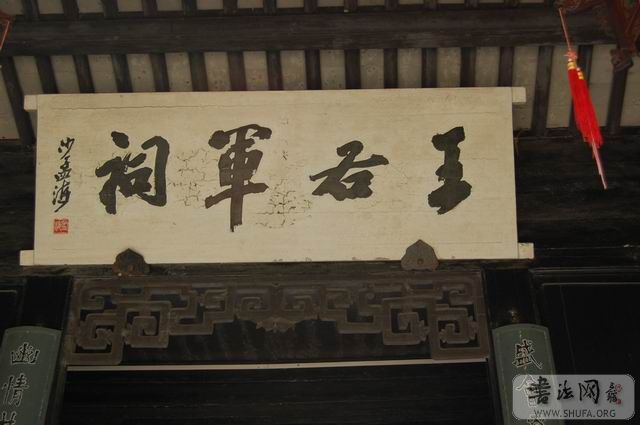 王右軍祠
沙孟海
盛
幽
情
書法网
WWW.SHUFA.ORG